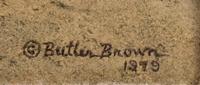 © Butler Brown
1979